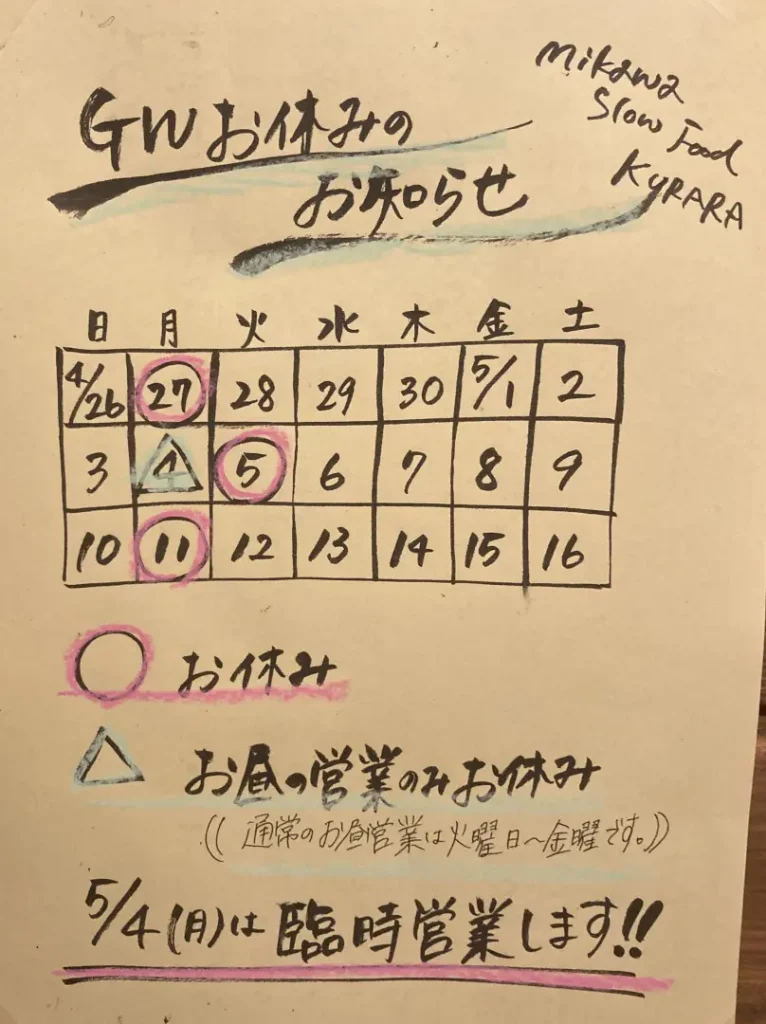 Mikawa
Slow Food
KYRARA
GWお休みの
お知らせ
日 月 火 水 木 金 土
4/26 27 28 29 30 5/1 2
3 4 5 6 7 8 9
10 11 12 13 14 15 16
お休み
お昼の営業のみお休み
((通常のお昼営業は火曜日～金曜です。))
5/4(月)は臨時営業します!!